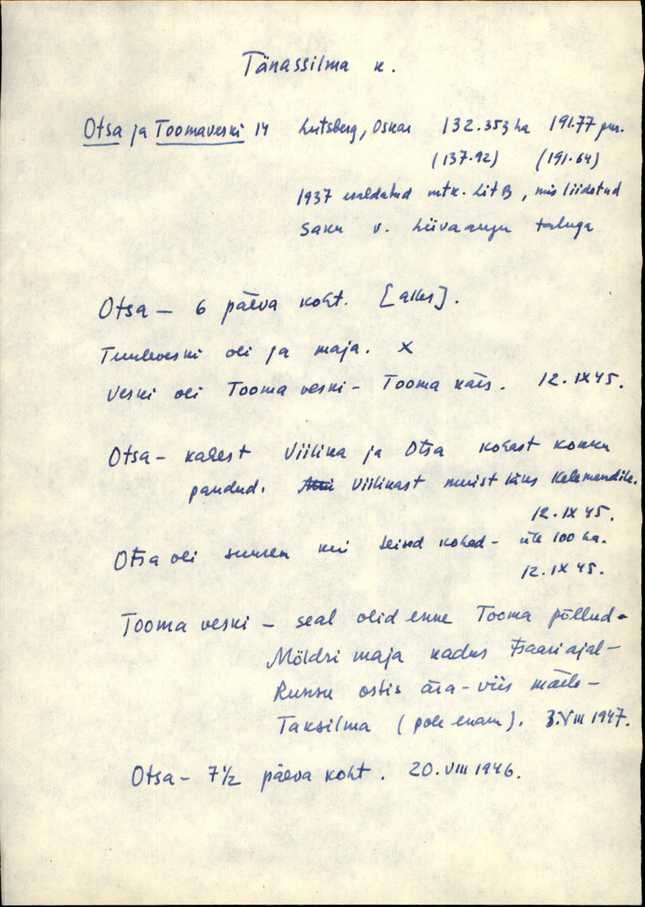 Tänassilma k.
Otsa ja Toomaveski 14 Lutsberg, Oskar 132.353 ha 191.77 pm.
(137.92) (191.64)
1937 eraldatud mtk. Lit B, mis liidetud
Saku v. Liivaaugu taluga
Otsa — 6 päeva koht. [alles].
Tuuleveski oli ja maja. X
Veski oli Tooma veski - Tooma käes. 12.IX 45.
Otsa — kahest Viilika ja Otsa kohast kokku
pandud. Viilikast muist läks Kelemendile.
12.IX 45.
Otsa oli suurem kui teised kohad - üle 100 ha.
12.IX 45.
Tooma veski — seal olid enne Tooma põllud -
Möldri maja kadus Tsaari ajal -
ostis ära - viis mäele -
Taksilma (pole enam). 3.VIII 1947.
Otsa - 7 1/2 päeva koht. 20.VIII 1946.